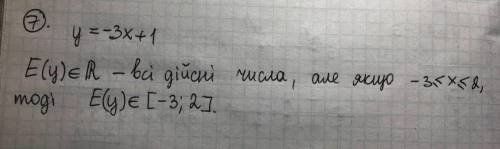 7. y = -3x+1
E(y)∈ℝ – всі дійсні числа, але якщо -3≤x≤2,
тоді E(y)∈[-3; 2].